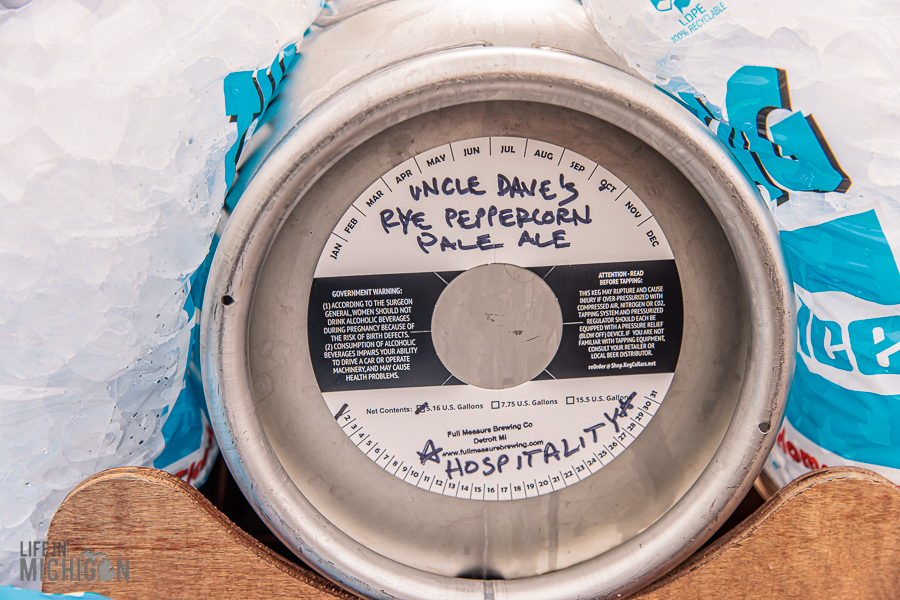 LDPE
100% RECYCLABLE
JAN FEB MAR APR MAY JUN JUL AUG SEP OCT NOV DEC
UNCLE DAVE'S
RYE PEPPERCORN
PALE ALE
GOVERNMENT WARNING:
(1) ACCORDING TO THE SURGEON
GENERAL, WOMEN SHOULD NOT
DRINK ALCOHOLIC BEVERAGES
DURING PREGNANCY BECAUSE OF
THE RISK OF BIRTH DEFECTS.
(2) CONSUMPTION OF ALCOHOLIC
BEVERAGES IMPAIRS YOUR ABILITY
TO DRIVE A CAR OR OPERATE
MACHINERY, AND MAY CAUSE
HEALTH PROBLEMS.
ATTENTION - READ
BEFORE TAPPING:
THIS KEG MAY RUPTURE AND CAUSE
INJURY IF OVER-PRESSURIZED WITH
COMPRESSED AIR, NITROGEN OR CO2.
TAPPING SYSTEM AND PRESSURIZED
REGULATOR SHOULD EACH BE
EQUIPPED WITH A PRESSURE RELIEF
(BLOW OFF) DEVICE. IF YOU ARE NOT
FAMILIAR WITH TAPPING EQUIPMENT,
CONSULT YOUR RETAILER OR
LOCAL BEER DISTRIBUTOR.
reOrder @ Shop.KegCollars.net
ice
Net Contents: 5.16 U.S. Gallons 7.75 U.S. Gallons 15.5 U.S. Gallons
Full Measure Brewing Co
Detroit MI
www.fullmeasurebrewing.com
HOSPITALITY
2 3 4 5 6 7 8 9 10 11 12 13 14 15 16 17 18 19 20 21 22 23 24 25 26 27 28 29 30 31
LIFE IN
MICHIGAN